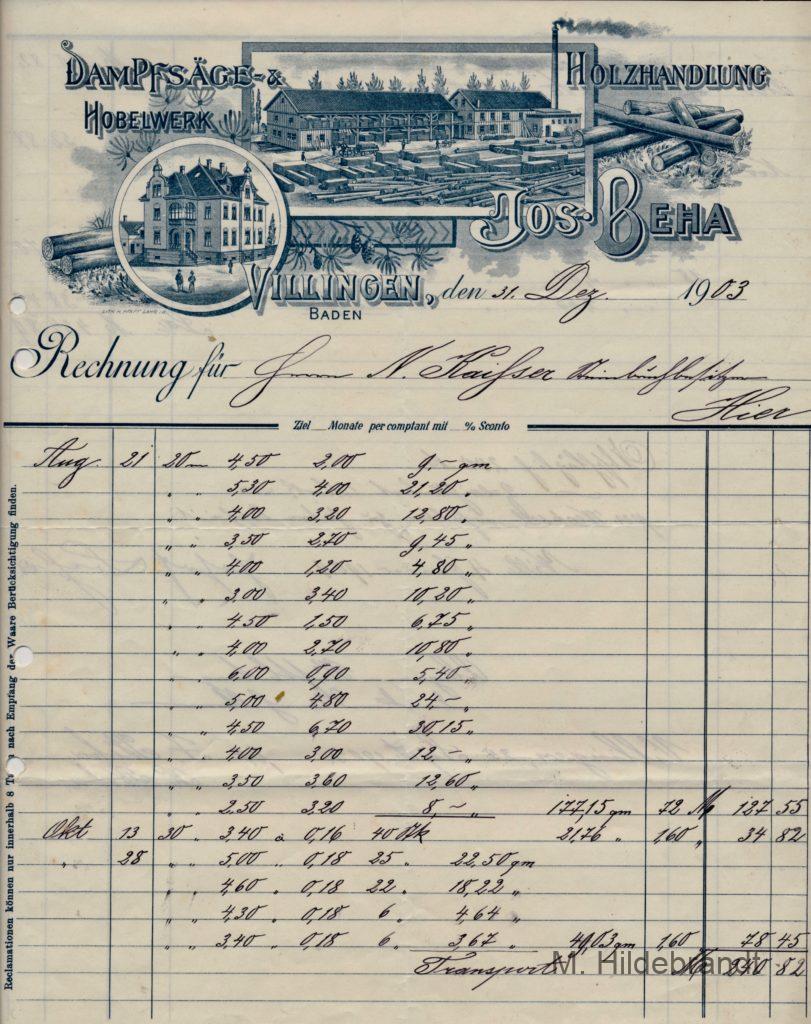 DAMPFSÄGE- & HOLZHANDLUNG
HOBELWERK
JOS. BEHA
VILLINGEN, den 31. Dez. 1903
BADEN
LITH. H. PFAFF LAHR i. B.
Rechnung für Herrn N. Kaisser Steinbruchbesitzer
Hier
Ziel Monate per comptant mit % Sconto
Aug. 21 20 m 4,50 2,00 9.- qm
" " 5,30 4,00 21,20 "
" " 4,00 3,20 12,80 "
" " 3,50 2,70 9,45 "
" " 4,00 1,20 4,80 "
" " 3,00 3,40 10,20 "
" " 4,50 1,50 6,75 "
" " 4,00 2,70 10,80 "
" " 6,00 0,90 5,40 "
" " 5,00 4,80 24,- "
" " 4,50 6,70 30,15 "
" " 4,00 3,00 12.- "
" " 3,50 3,60 12,60 "
" " 2,50 3,20 8,- " 177,15 qm 72 M 127 55
Okt 13 30 " 3,40 à 0,16 40 Stk 21,76 " 1,60 " 34 82
" 28 " " 5,00 " 0,18 25 " 22,50 qm
" " 4,60 " 0,18 22 " 18,22 "
" " 4,30 " 0,18 6 " 4,64 "
" " 3,40 " 0,18 6 " 3,67 " 49,03 qm 1,60 78 45
Transport M 240 82
M. Hildebrandt
Reclamationen können nur innerhalb 8 Tagen nach Empfang der Waare Berücksichtigung finden.